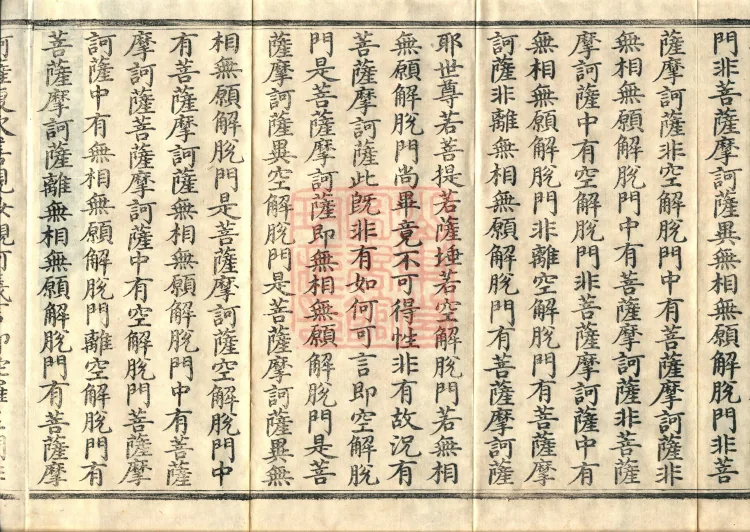 門非菩薩摩訶薩異無相無願解脫門非菩
薩摩訶薩非空解脫門中有菩薩摩訶薩非
無相無願解脫門中有菩薩摩訶薩非菩薩
摩訶薩中有空解脫門非菩薩摩訶薩中有
無相無願解脫門非離空解脫門有菩薩摩
訶薩非離無相無願解脫門有菩薩摩訶薩
耶世尊若菩提若薩埵若空解脫門若無相
無願解脫門尚畢竟不可得性非有故況有
菩薩摩訶薩此既非有如何可言即空解脫
門是菩薩摩訶薩即無相無願解脫門是菩
薩摩訶薩異空解脫門是菩薩摩訶薩異無
相無願解脫門是菩薩摩訶薩空解脫門中
有菩薩摩訶薩無相無願解脫門中有菩薩
摩訶薩菩薩摩訶薩中有空解脫門菩薩摩
訶薩中有無相無願解脫門離空解脫門有
菩薩摩訶薩離無相無願解脫門有菩薩摩